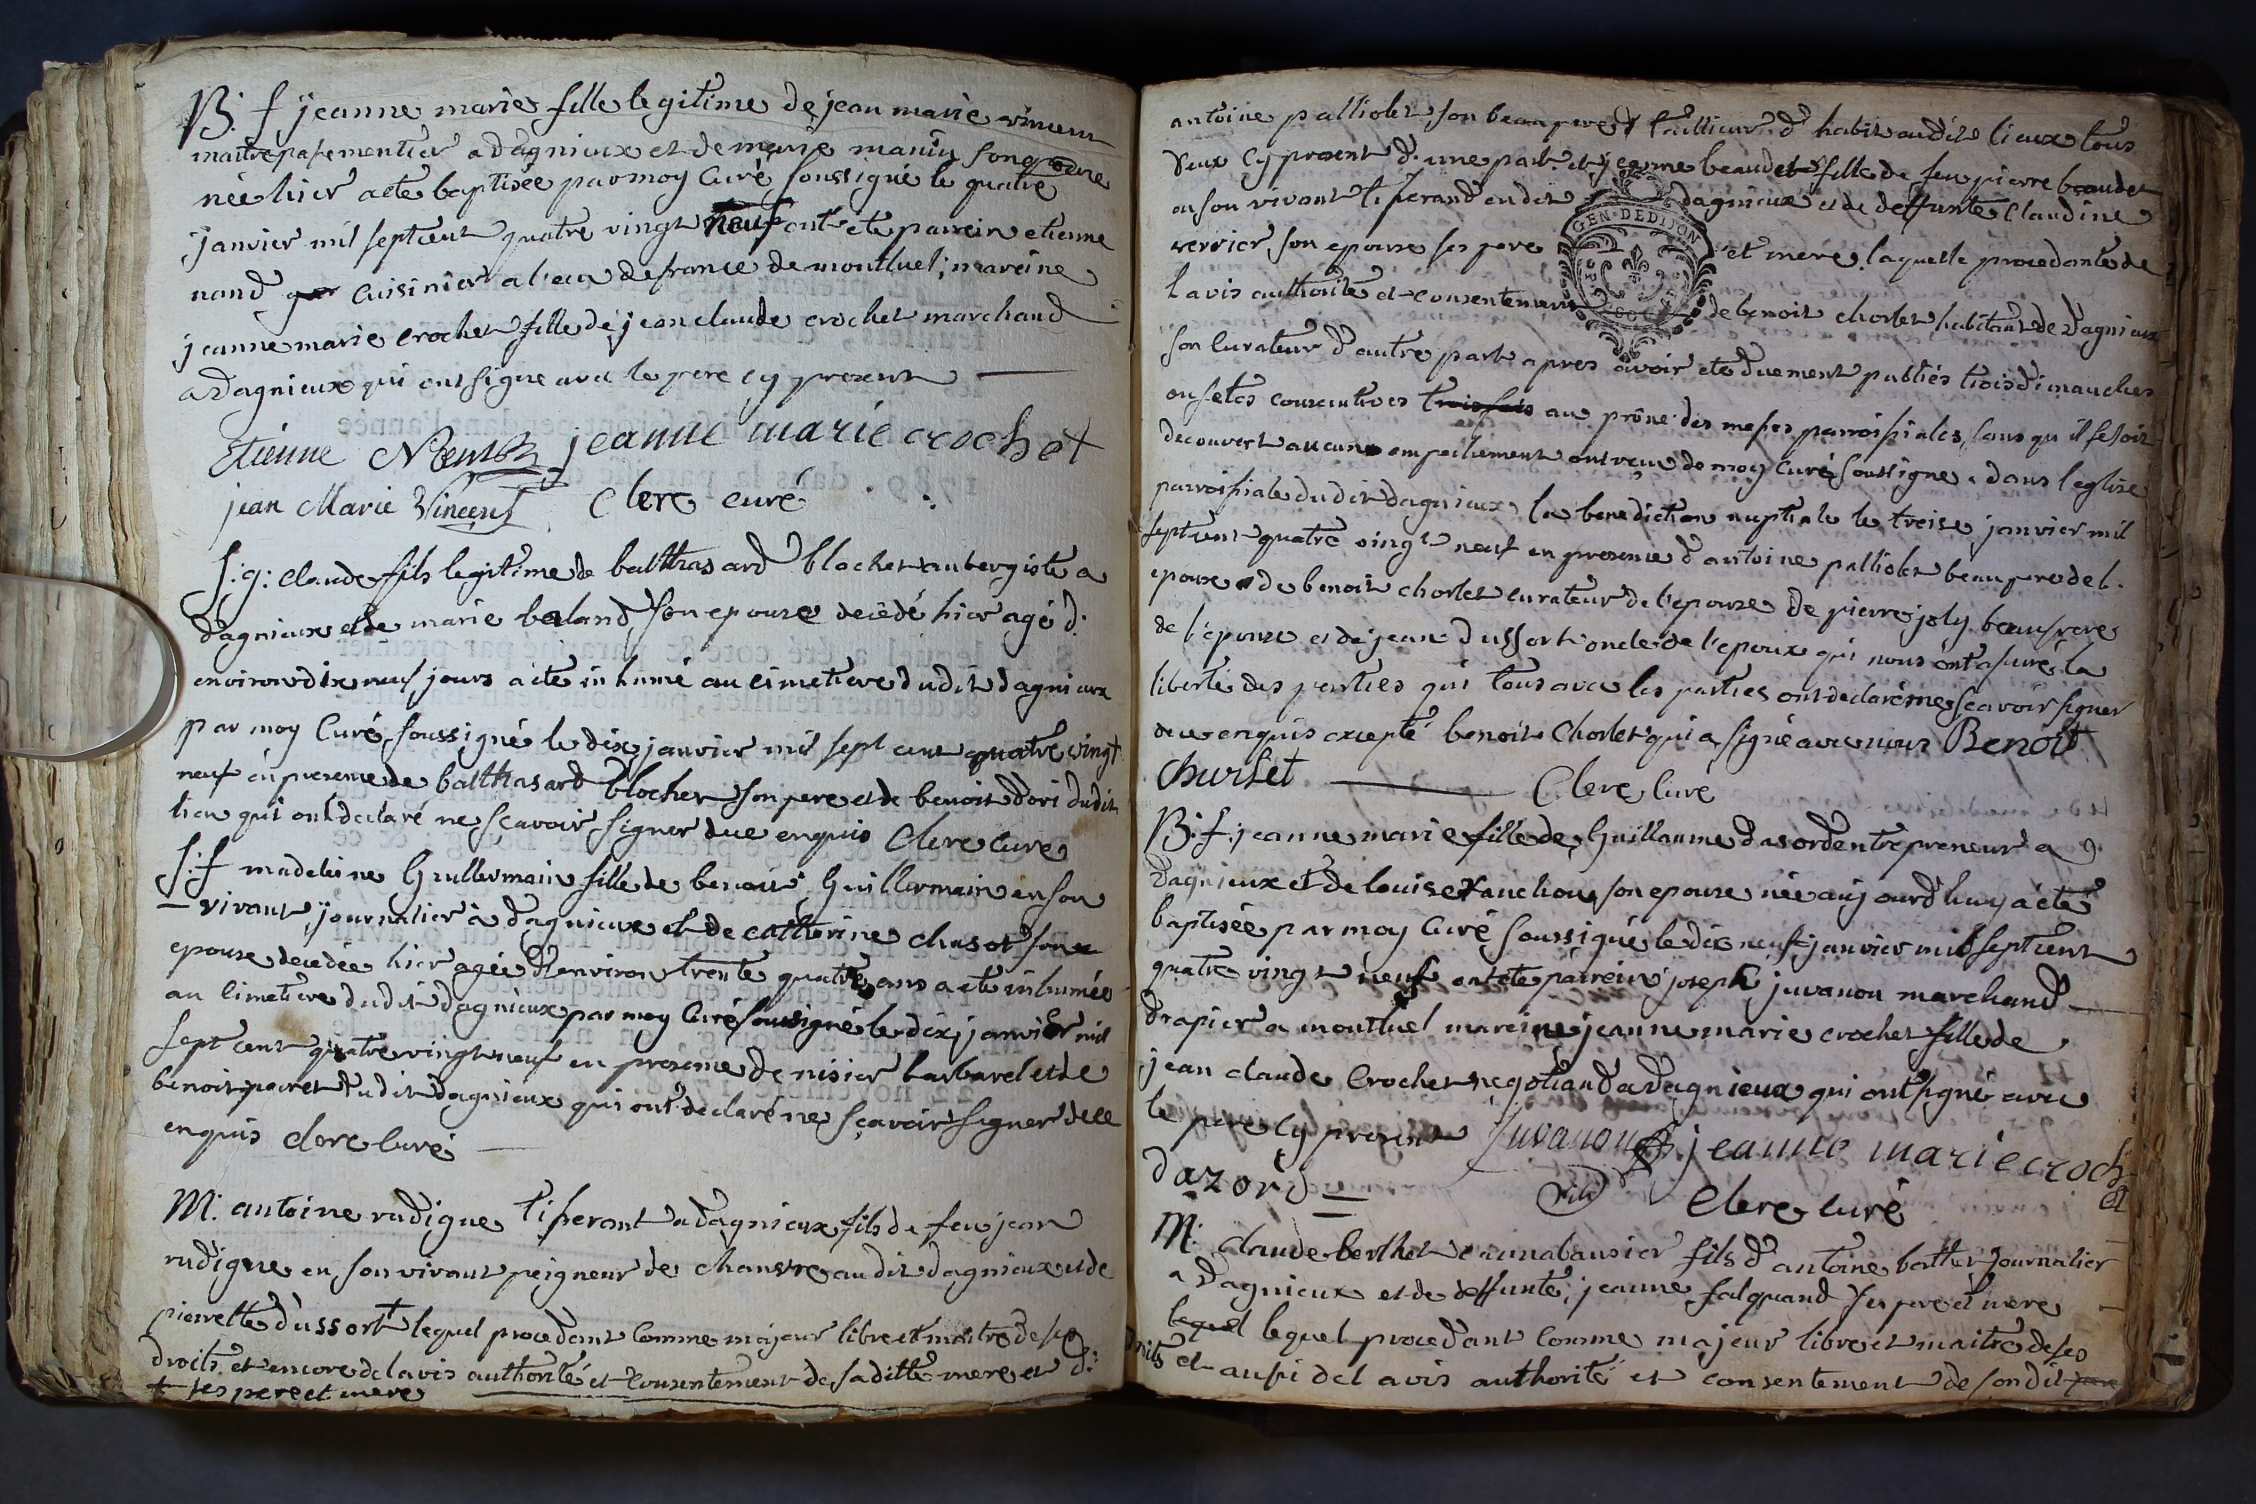 B. f jeanne marie fille legitime de jean marie vincent
maitre pasementier a dagnieux et de marie son epouse
née hier a ete baptisée par moy Curé soussigné le quatre
janvier mil septcent quatre vingt neuf ont ete parrein etienne
nand cuisinier a l'ecu de france de montluel; mareine
jeanne marie crochet fille de jean claude crochet marchand
a dagnieux qui ont signe avec le pere cy present
Etienne jeanne marie crochet
jean Marie Vincent Clere curé
S: g: claude fils legitime de balthasard blochet aubergiste a
dagnieux et de marie berland son epouse decedé hier agé d:
environ dix neuf jours a ete inhumé au cimetiere dudit dagnieux
par moy Curé soussigné le dix janvier mil sept cent quatre vingt
neuf en presence de balthasard blochet son pere et de benoit dori dudit
lieu qui ont declaré ne sçavoir signer de ce enquis Clere curé
S: f madeleine Guillermain fille de benoit Guillermain en son
vivant journalier à dagnieux et de catherine chasot son
epouse decedée hier agée d'environ trente quatre ans a ete inhumée
au cimetiere dudit dagnieux par moy Curé soussigné le dix janvier mil
sept cent quatre vingt neuf en presence de nisier barbarel et de
benoit dudit dagnieux qui ont declaré ne sçavoir signer de ce
enquis clere curé
M. antoine rudigue tiserant a dagnieux fils de feu jean
rudigue en son vivant peigneur de chanvre audit dagnieux et de
pierrette dussort + lequel procedant comme majeur libre et maitre de ses
droits et encore de l avis authorité et consentement de sa ditte mere et d:
+ ses pere et mere
antoine palliolet son beau pere tailleur d habit audit lieux tous
deux cy present d. une part et jeanne beaudet fille de feu pierre beaudet
en son vivant tiserand en dit dagnieux et de deffunte Claudine
vervier son epouse ses pere et mere laquelle procedante de
l avis authorité et consentement de benoit chorlet habitant de dagnieux
son curateur d'autre part apres avoir ete duement publiés trois dimanches
ou fetes consecutives trois fois au prône des messes parroissiales sans qu il se soit
decouvert aucun empechement ont recu de moy curé soussigne dans l eglise
parroissiale dudit dagnieux la benediction nuptiale le treise janvier mil
septcent quatre vingt neuf en presence d'antoine palliolet beau pere de l.
epoux de benoit chorlet curateur de l'epouse de pierre joly beaufrere
de l'epouse et de jean dussort oncle de l'epoux qui nous ont asuré la
liberté des parties qui tous avec les parties ont declaré ne sçavoir signer
de ce enquis excepté benoit chorlet qui a signé avec nous Benoit
churlet Clere Curé
B: f: jeanne marie fille de Guillaume dasord entrepreneur a
dagnieux et de louise fanchon son epouse née aujourd'huy a été
baptisée par moy Curé soussigné le dix neuf janvier mil septcent
quatre vingt neuf ont ete pairein joseph juvanon marchand
drapier a montluel mareine jeanne marie crochet fille de
jean claude Crochet negotiand a dagnieux qui ont signé avec
le pere cy present Juvanon jeanne marie croch
et
dazord Clere curé
M. claude berthet cannabassier fils d antoine berthet journalier
a dagnieux et de deffunte jeanne falquand ses pere et mere
lequel lequel procedant comme majeur libre et maitre de ses
droits et aussi de l avis authorité et consentement de son dit pere
GEN · DE DIJON